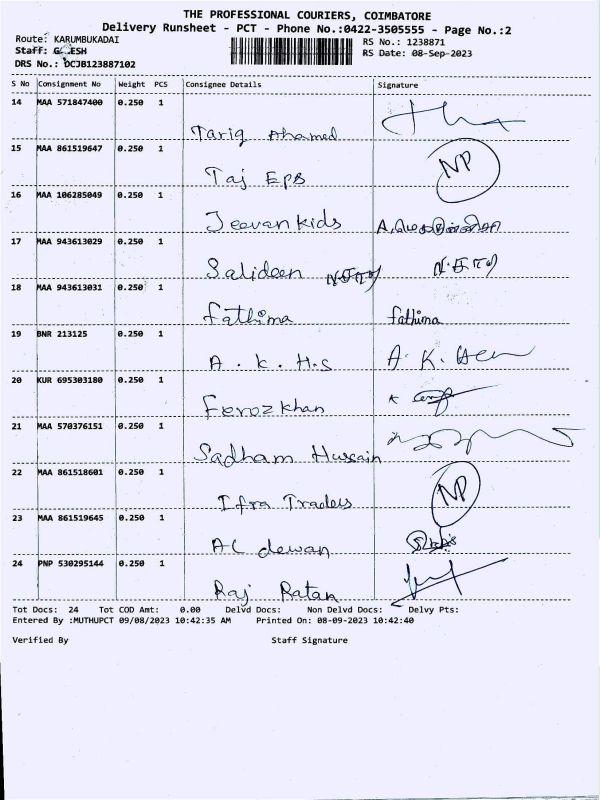 THE PROFESSIONAL COURIERS, COIMBATORE
Delivery Runsheet - PCT - Phone No.:0422-3505555 - Page No.:2
Route: KARUMBUKADAI
RS No.: 1238871
Staff:
RS Date: 08-Sep-2023
DRS No.: DCJB123887102
S No Consignment No Weight PCS Consignee Details Signature
14 MAA 571847400 0.250 1
Tariq Ahamed
15 MAA 861519647 0.250 1
Taj EPS NP
16 MAA 106285049 0.250 1
Jeevan kids
17 MAA 943613029 0.250 1
Salideen
18 MAA 943613031 0.250 1
fathima fathima
19 BNR 213125 0.250 1
A . K . H.S A. K.
20 KUR 695303180 0.250 1
Feroz khan
21 MAA 570376151 0.250 1
Sadham Hussain
22 MAA 861518601 0.250 1
Ifra Traders NP
23 MAA 861519645 0.250 1
AL dewan
24 PNP 530295144 0.250 1
Raj Ratan
Tot Docs: 24 Tot COD Amt: 0.00 Delvd Docs: Non Delvd Docs: Delvy Pts:
Entered By :MUTHUPCT 09/08/2023 10:42:35 AM Printed On: 08-09-2023 10:42:40
Verified By Staff Signature